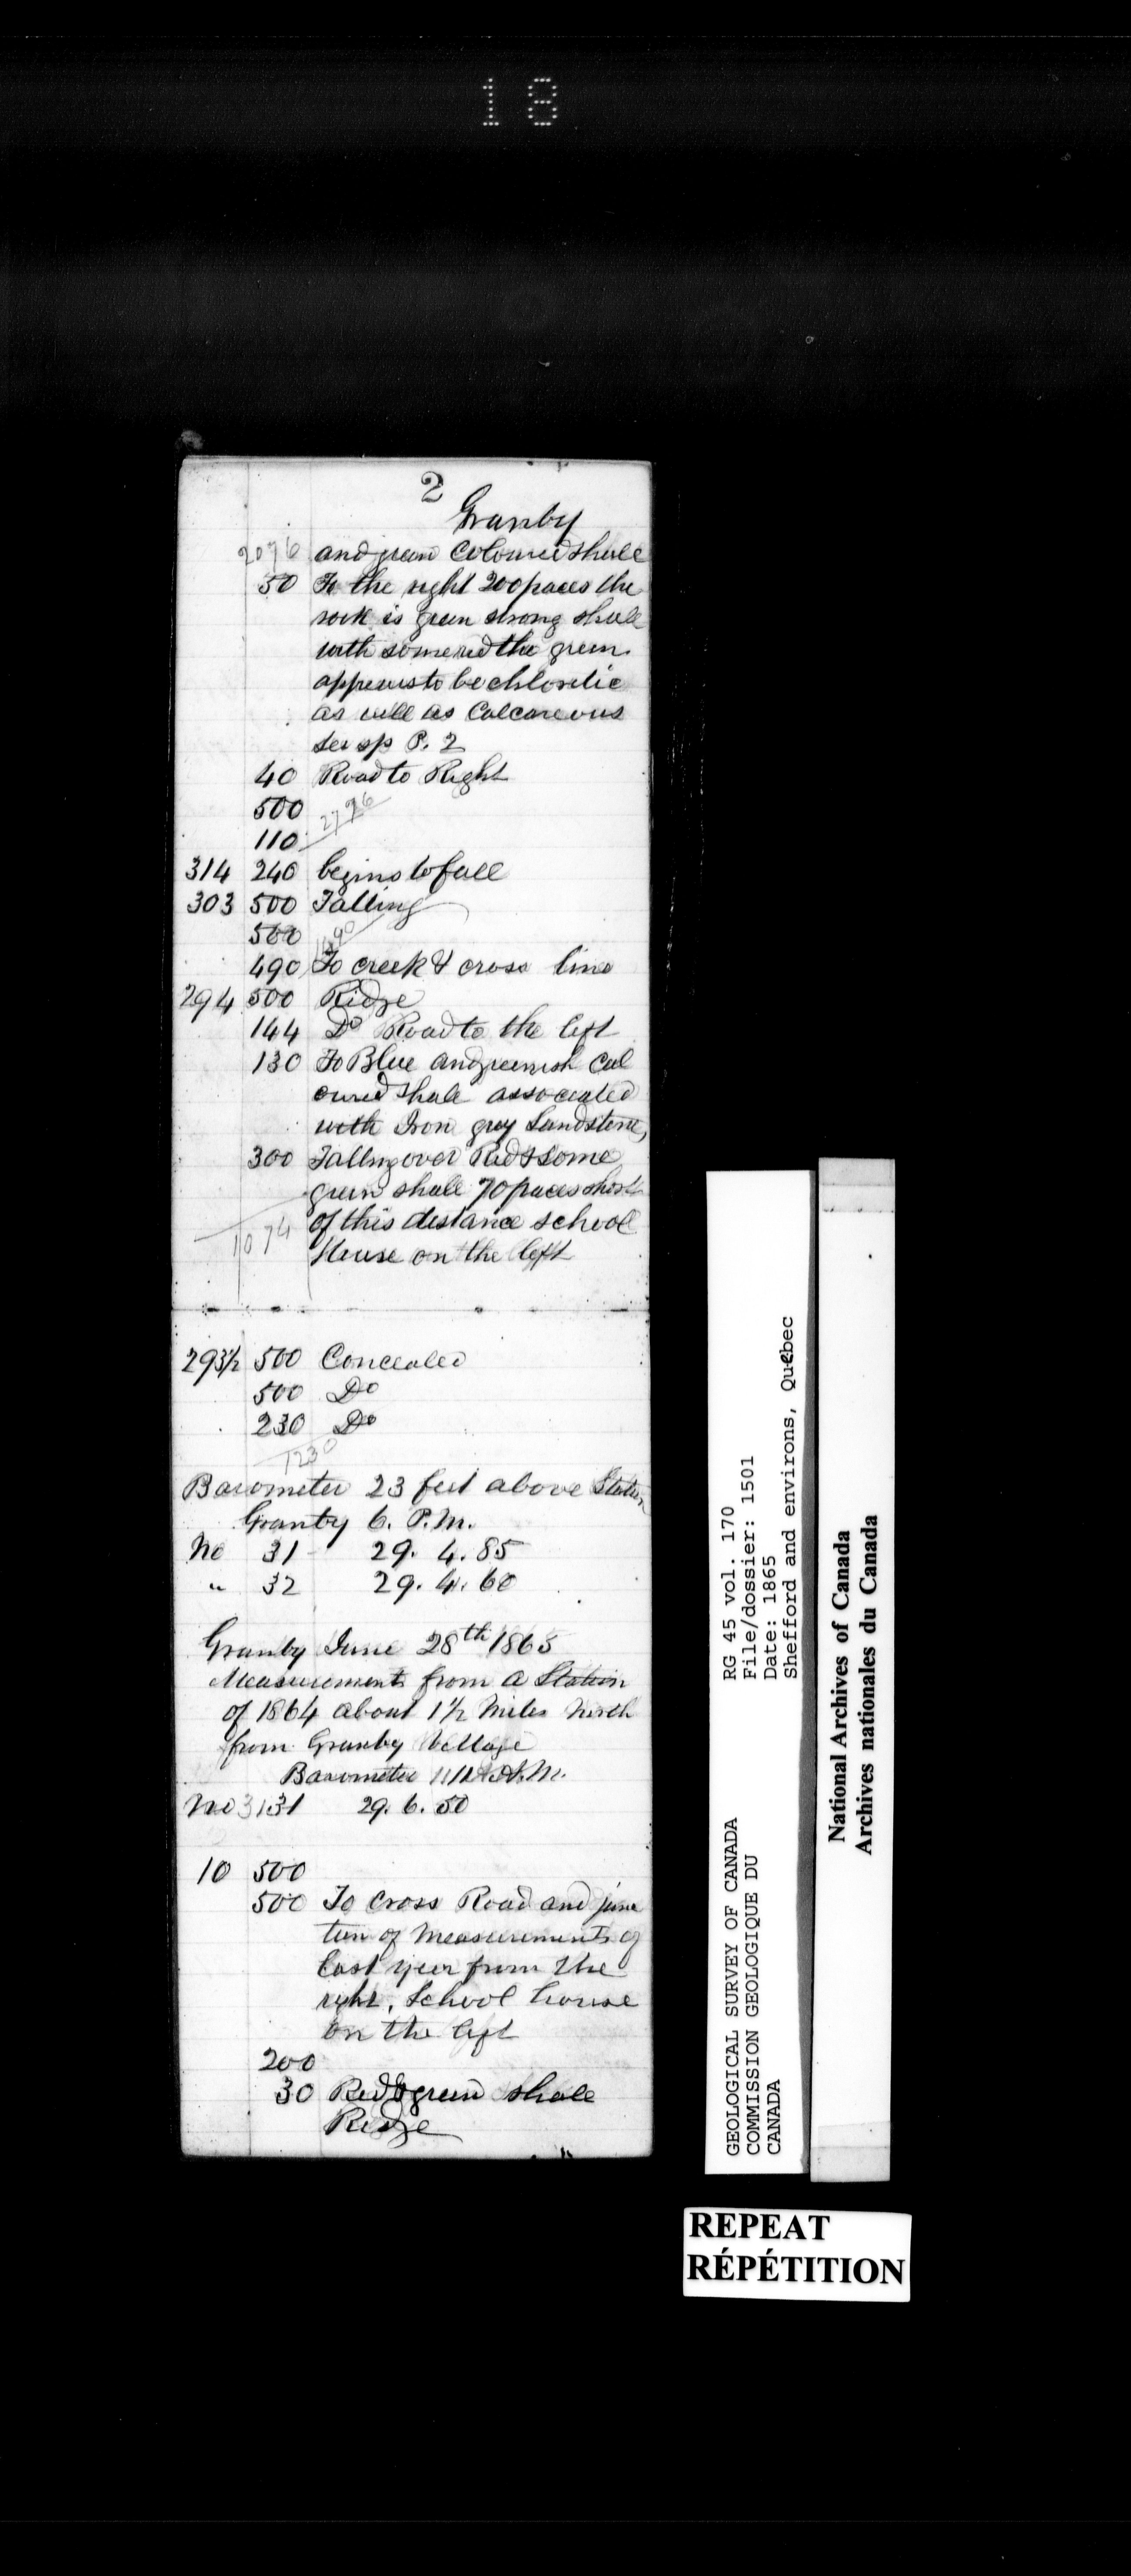 18
2
Granby
2076 and green Coloured shale
50 To the right 200 paces the
rock is green strong shale
with some red the green
appears to be chloritic
as well as Calcareous
See sp P. 2
40 Road to Right
500 2726
110
314 240 begins to fall
303 500 Falling
500
490 To creek & cross line
294 500 Ridge
144 Do Road to the left
130 To Blue and greenish Col
oured shale associated
with Iron grey Sandstone,
300 Falling over Red & some
green shale 70 paces short
1074 of this distance school
House on the left
293½ 500 Concealed
500 Do
230 Do
1230
Barometer 23 feet above Station
Granby 6. P.M.
No 31 29. 4. 85
" 32 29. 4. 60
Granby June 28th 1865
Measurements from a Station
of 1864 about 1½ Miles North
from Granby Village
Barometer A.M.
No 31 29. 6. 50
10 500
500 To Cross Road and junc
tion of Measurements of
last year from the
right, School house
on the left
200
30 Red & green shale
Ridge
GEOLOGICAL SURVEY OF CANADA
COMMISSION GEOLOGIQUE DU
CANADA
RG 45 vol. 170
File/dossier: 1501
Date: 1865
Shefford and environs, Quebec
National Archives of Canada
Archives nationales du Canada
REPEAT
RÉPÉTITION